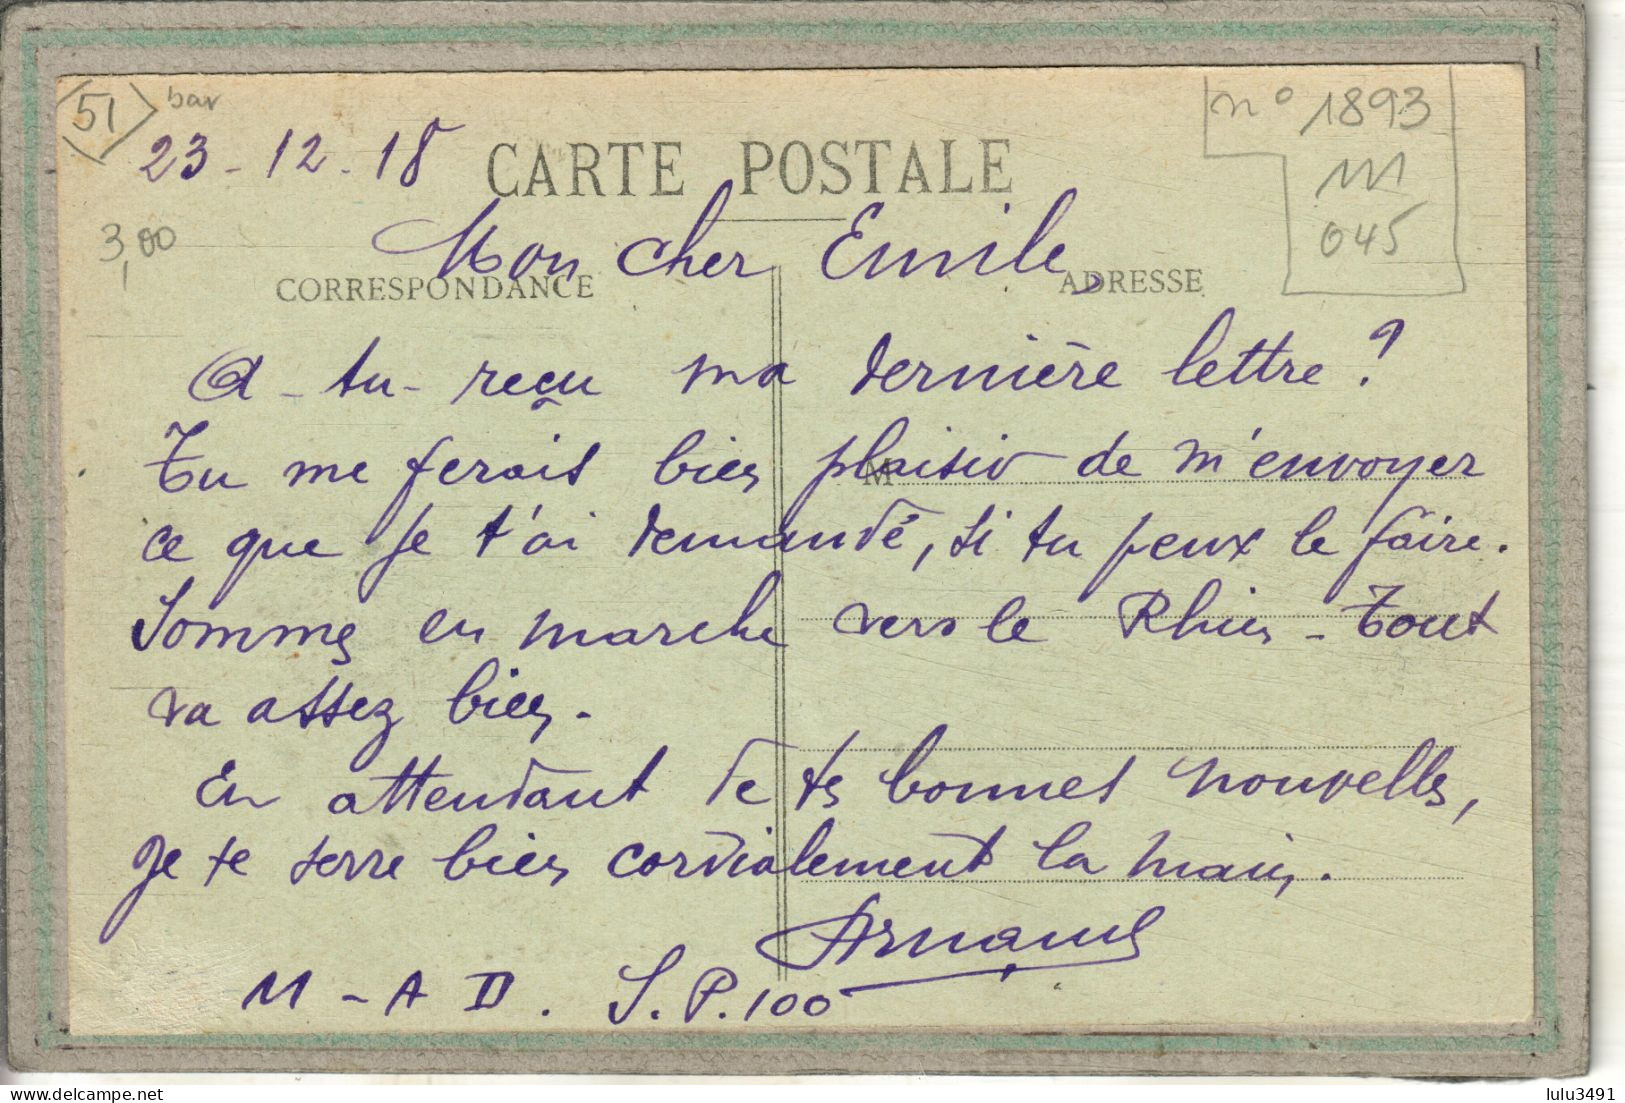 51 bar
n° 1893
23 - 12 - 18
CARTE POSTALE
045
3,00
Mon cher Emile,
CORRESPONDANCE
ADRESSE
A - tu - reçu ma dernière lettre ?
Tu me ferais bien plaisir de m'envoyer
M
ce que je t'ai demandé, si tu peux le faire.
Sommes en marche vers le Rhin - Tout
va assez bien.
En attendant de tes bonnes nouvelles,
je te serre bien cordialement la main.
Arnaud
M - A D. S. P. 100
lulu3491